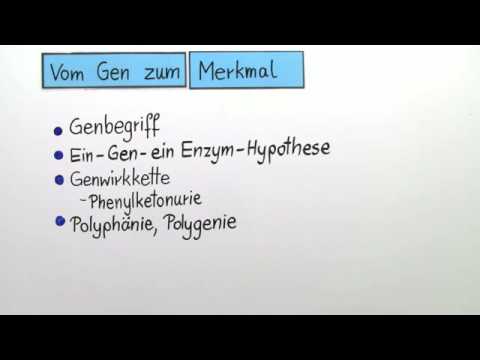 Vom Gen zum Merkmal
Genbegriff
Ein-Gen-ein Enzym-Hypothese
Genwirkkette
-Phenylketonurie
Polyphänie, Polygenie